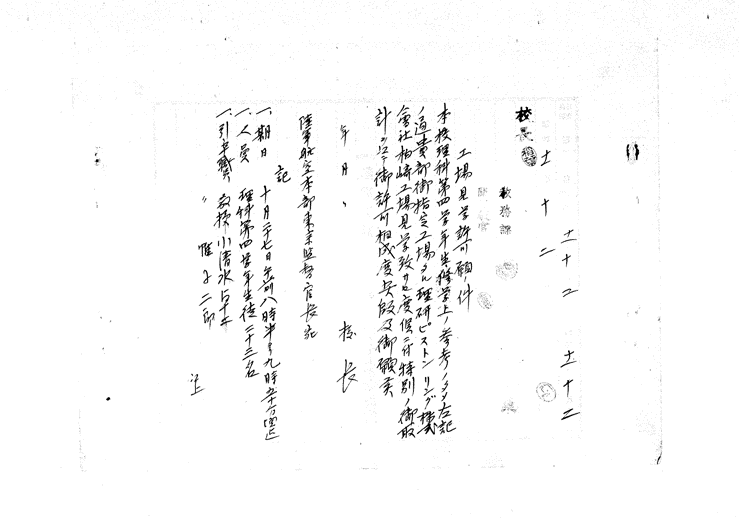 十一 十二
十一 十二
十一 十二
校長
教務課
工場見学許可願ノ件
本校理科第四学年生修学上ノ参考ノタメ左記
ノ通貴部御指定工場タル理研ピストンリング株式
會社柏崎工場見学致サセ度候ニ付特別ノ御取
計ヲ以テ御許可相成度此段及御願候
年 月 日
校長
陸軍航空本部東京監督官長宛
記
一、期日 十月二十七日午前八時半ヨリ九時五十分迄
一、人員 理科第四学年生徒二十三名
一、引率職員 教授 小清水
〃
以上